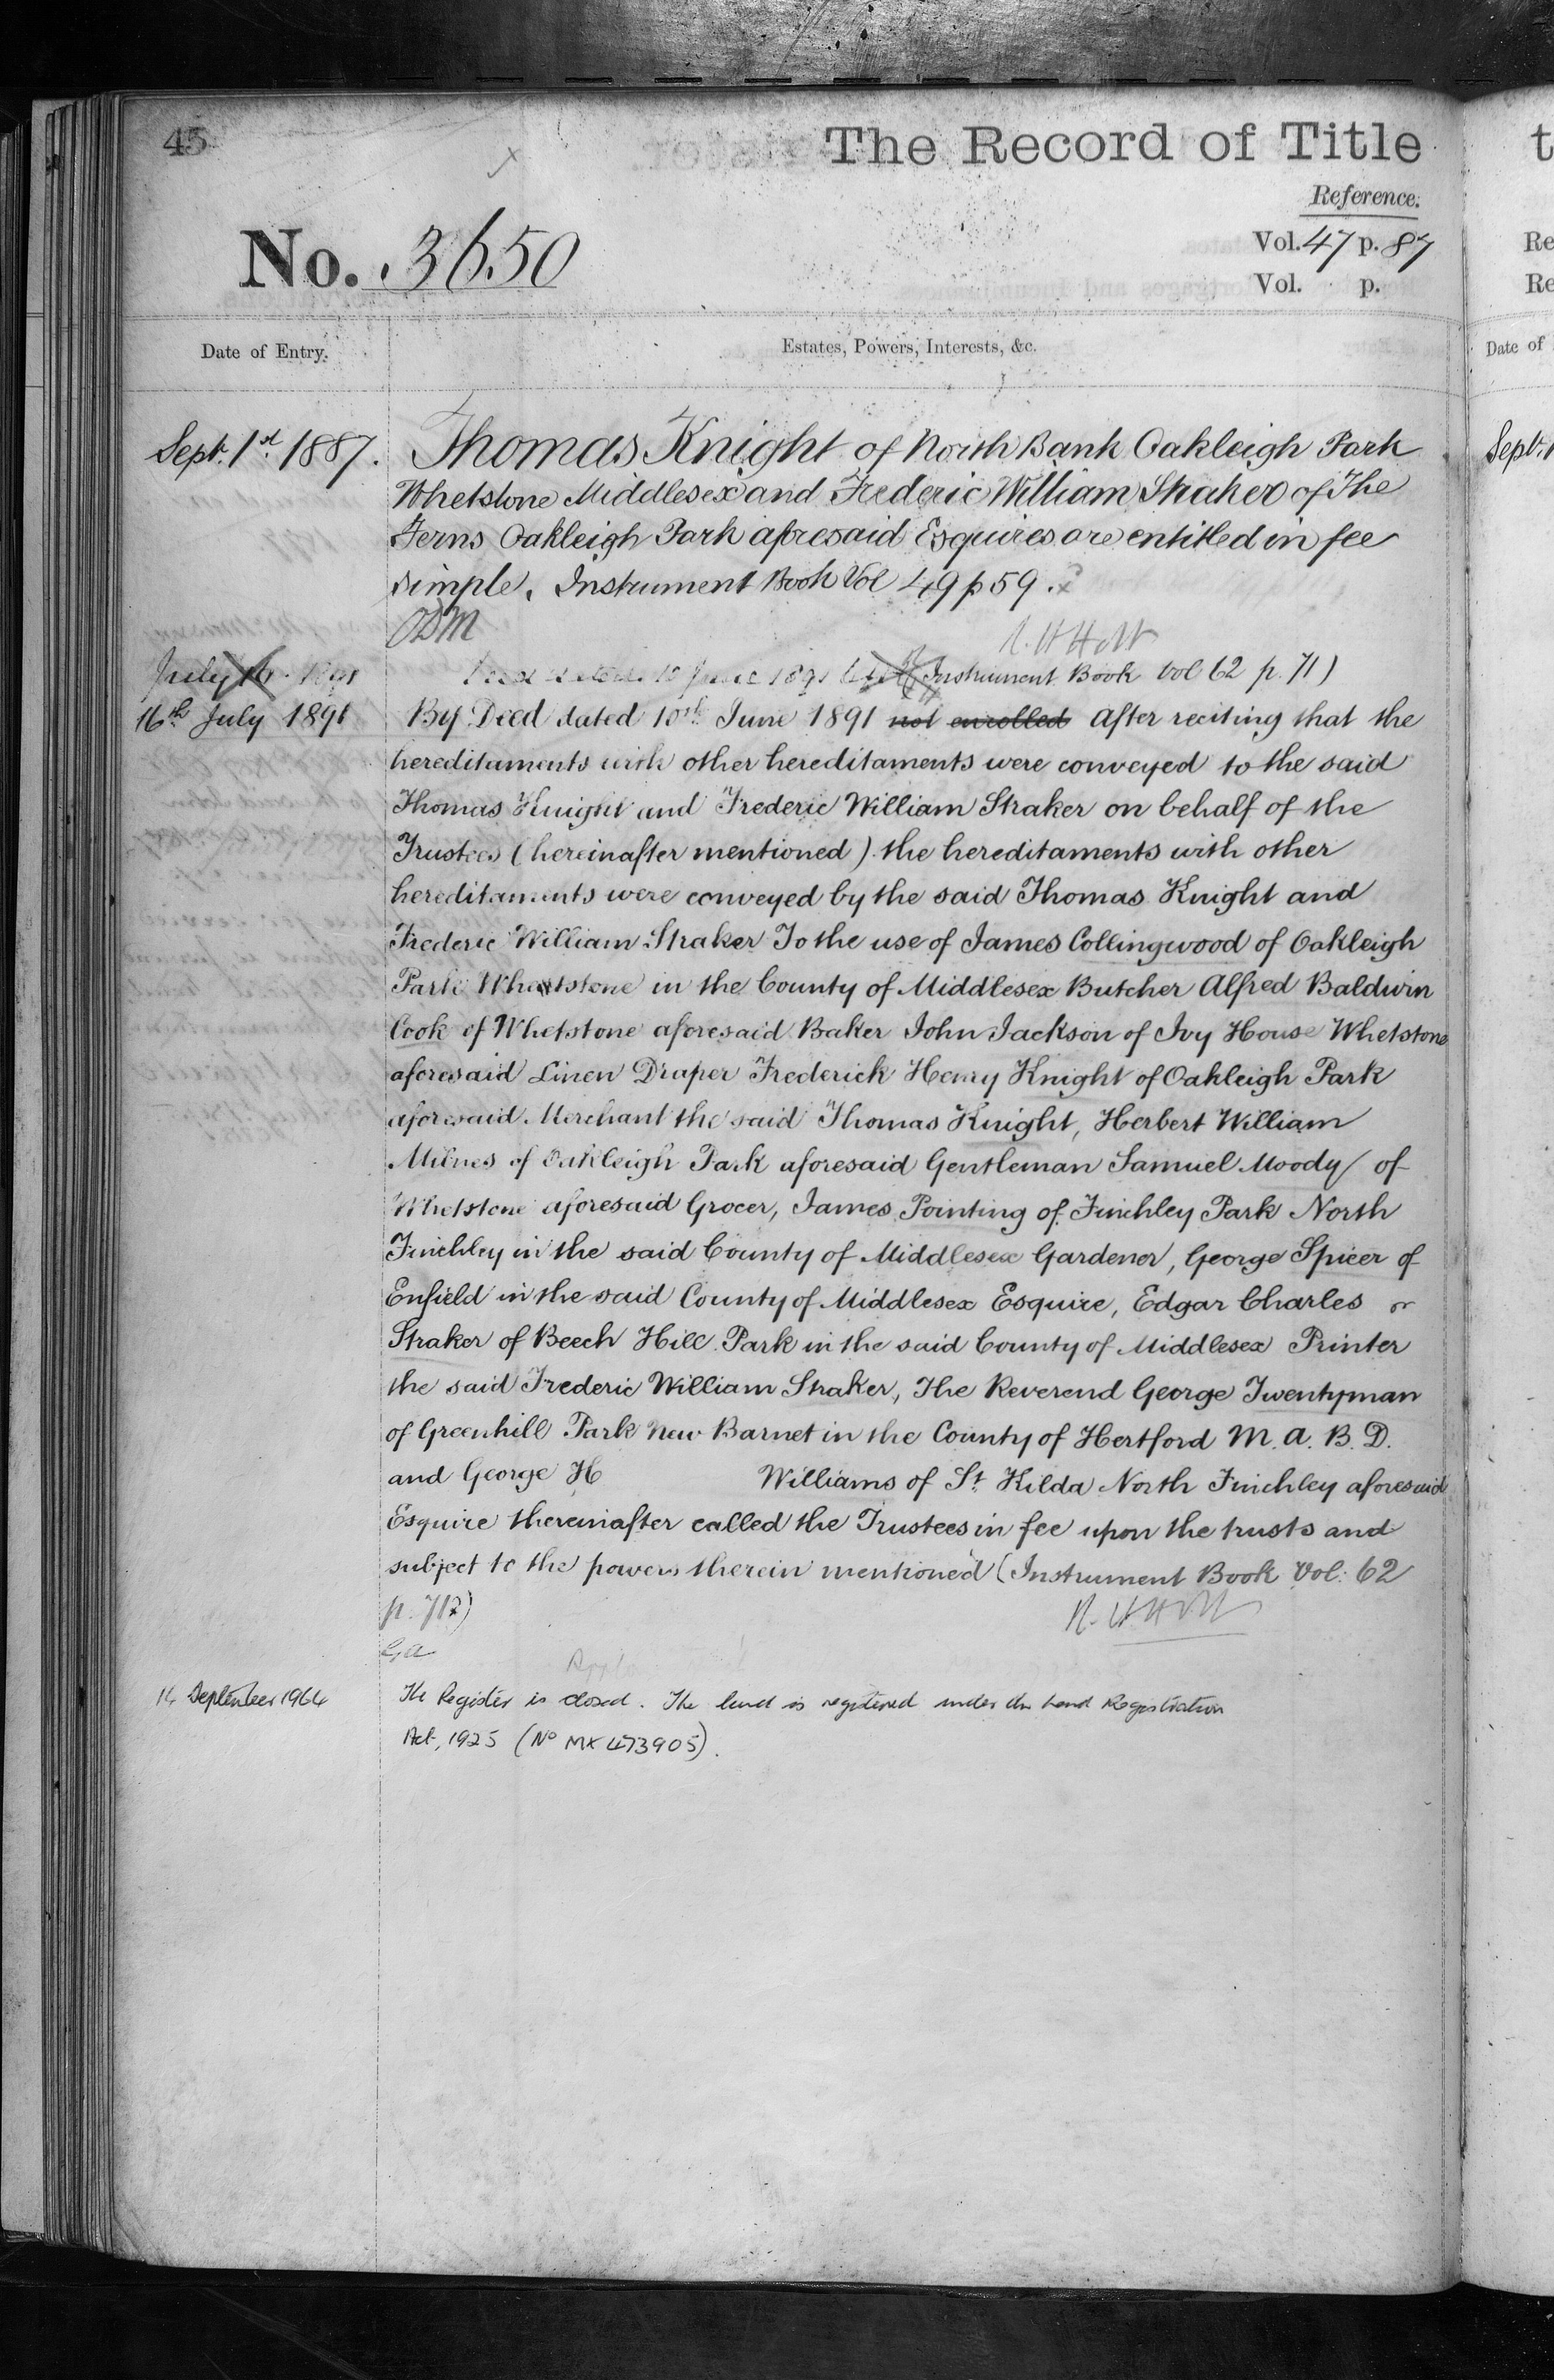 45
The Record of Title
Reference.
No. 3650
Vol. 47 p. 87
Vol. p.
Date of Entry.
Estates, Powers, Interests, &c.
Sept. 1st 1887.
Thomas Knight of North Bank Oakleigh Park
Whetstone Middlesex and Frederic William Straker of The
Ferns Oakleigh Park aforesaid Esquires are entitled in fee
simple. Instrument Book Vol 49 p 59.
July 16 1891
Deed dated 10 June 1891 Instrument Book Vol 62 p. 71)
16th July 1891
By Deed dated 10th June 1891 not enrolled After reciting that the
hereditaments with other hereditaments were conveyed to the said
Thomas Knight and Frederic William Straker on behalf of the
Trustees (hereinafter mentioned) the hereditaments with other
hereditaments were conveyed by the said Thomas Knight and
Frederic William Straker To the use of James Collingwood of Oakleigh
Park Whetstone in the County of Middlesex Butcher Alfred Baldwin
Cook of Whetstone aforesaid Baker John Jackson of Ivy House Whetstone
aforesaid Linen Draper Frederick Henry Knight of Oakleigh Park
aforesaid Merchant the said Thomas Knight, Herbert William
Milnes of Oakleigh Park aforesaid Gentleman Samuel Moody of
Whetstone aforesaid Grocer, James Pointing of Finchley Park North
Finchley in the said County of Middlesex Gardener, George Spicer of
Enfield in the said County of Middlesex Esquire, Edgar Charles
Straker of Beech Hill Park in the said County of Middlesex Printer
the said Frederic William Straker, The Reverend George Twentyman
of Greenhill Park New Barnet in the County of Hertford M.A. B.D.
and George H Williams of St. Kilda North Finchley aforesaid
Esquire thereinafter called the Trustees in fee upon the trusts and
subject to the powers therein mentioned (Instrument Book Vol: 62
p. 712)
14 September 1964
The Register is closed. The land is registered under the Land Registration
Act, 1925 (No MX 473905).
t
Re
Re
Date of
Sept. 1